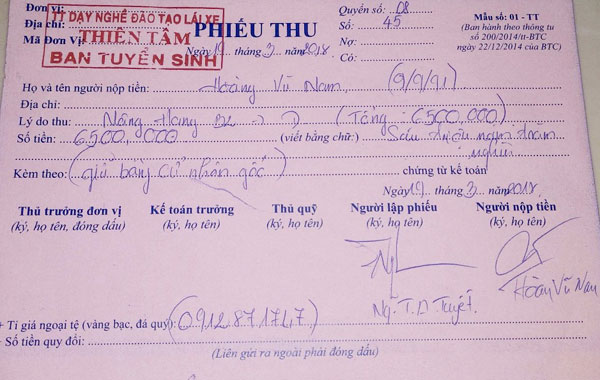 Đơn vị:
Địa chỉ:
Mã Đơn Vị
TT DẠY NGHỀ ĐÀO TẠO LÁI XE
THIÊN TÂM
BAN TUYỂN SINH
PHIẾU THU
Ngày 19 tháng 3 năm 2018
Quyển số: 08
Số: 45
Nợ:
Có:
Mẫu số: 01 - TT
(Ban hành theo thông tư
số 200/2014/tt-BTC
ngày 22/12/2014 của BTC)
Họ và tên người nộp tiền: Hoàng Vũ Nam (9/9/91)
Địa chỉ:
Lý do thu: Nâng Hạng B2 → D (Tổng: 6500,000)
Số tiền: 6500,000 (viết bằng chữ): Sáu triệu năm trăm
nghìn
Kèm theo: (giữ bằng cử nhân gốc) chứng từ kế toán
Ngày 19 tháng 3 năm 2018
Thủ trưởng đơn vị Kế toán trưởng Thủ quỹ Người lập phiếu Người nộp tiền
(ký, họ tên, đóng dấu) (ký, họ tên) (ký, họ tên) (ký, họ tên) (ký, họ tên)
Ng. T. D Tuyết Hoàng Vũ Nam
+ Tỉ giá ngoại tệ (vàng bạc, đá quý): (0912871747)
- Số tiền quy đổi:
(Liên gửi ra ngoài phải đóng dấu)